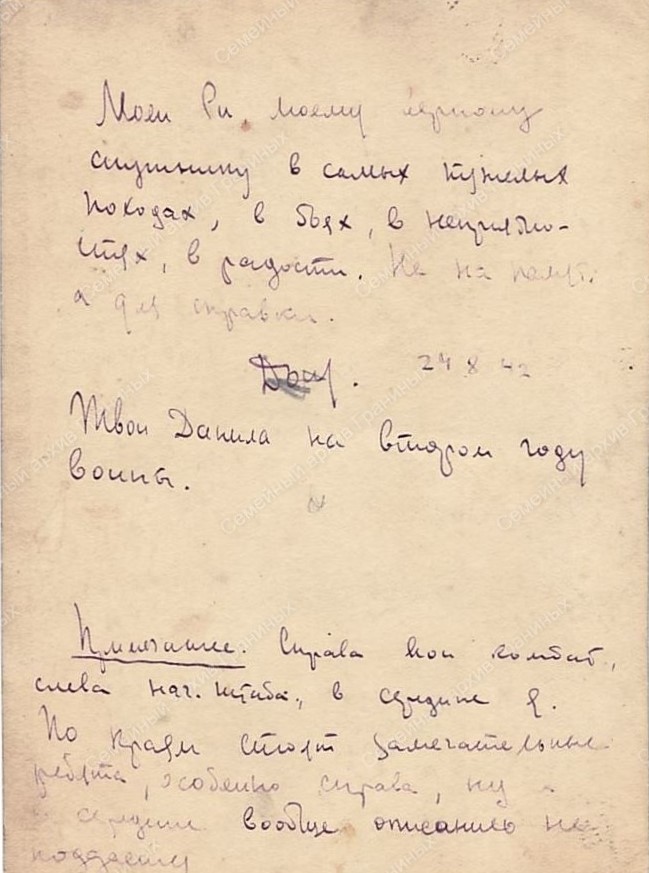 Моей Ри, моему верному
спутнику в самых тяжелых
походах, в боях, в неприятно-
стях, в радости. Не на память
а для справки.
24 8 42
Твой Данила на втором году
войны.
Примечание: Справа мой комбат,
слева нач. штаба, в середине я.
По краям стоят замечательные
ребята, особенно справа, ну а
в середине вообще описанию не
поддается